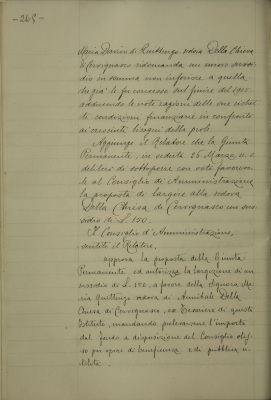 - 265 -
Maria Danisi di Quattengo vedova Della Chiesa
di Cervignasco ridomanda un nuovo sussi-
dio in somma non inferiore a quella
che già le fu concessa sul finire del 1915
adducendo le note ragioni delle sue ristret-
te condizioni finanziarie in confronto
ai cresciuti bisogni della prole.
Aggiunge il Relatore che la Giunta
Permanente, in seduta 26 Marzo u. s.
deliberò di sottoporre con voto favorevo-
le al Consiglio di Amministrazione
la proposta di largire alla vedova
Della Chiesa di Cervignasco un sus-
sidio di L. 150.
Il Consiglio d'Amministrazione,
sentito il Relatore,
approva la proposta della Giunta
Permanente ed autorizza la largizione di un
sussidio di L. 150, a favore della Signora Ma-
ria Quattengo vedova di Annibale Della
Chiesa di Cervignasco, ex Economo di questo
Istituto, mandando prelevarsene l'importo
dal fondo a disposizione del Consiglio stes-
so per opere di beneficenza e di pubblica u-
tilità.